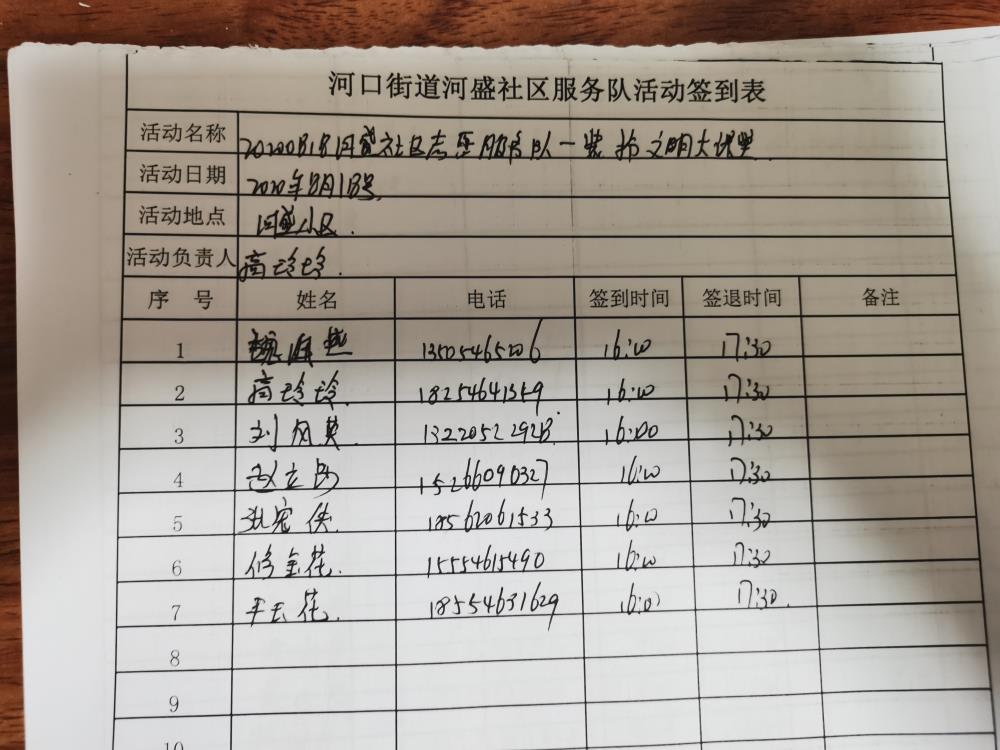 河口街道河盛社区服务队活动签到表
活动名称 20200818河盛社区志愿服务队一装扮文明大课堂
活动日期 2020年8月18号
活动地点 河盛小区.
活动负责人 高玲玲.
序 号 姓名 电话 签到时间 签退时间 备注
1 13505465206 16:00 17:30
2 高玲玲. 18254641359 16:00 17:30
3 刘风英. 13220522928 16:00 17:30
4 15266090327 16:00 17:30
5 18562061533 16:00 17:30
6 修金花. 15554615490 16:00 17:30
7 王玉花. 18554631629 16:00 17:30.
8
9
10